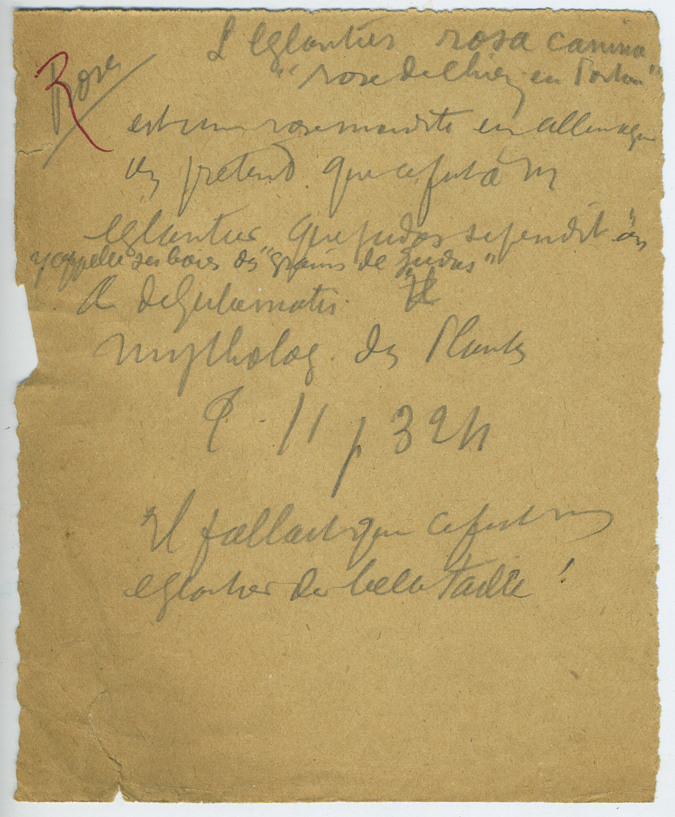 Rose
L'Eglantier rosa canina
"rose de chien en Poitou"
est une rose maudite en allemagne
on prétend que ce fut à un
eglantier que judas se pendit on
y appelle ses baies des "grains de Judas"
A de Gubernatis
mytholog. des Plantes
T. II p 324
Il fallait que ce fut un
eglantier de belle taille !